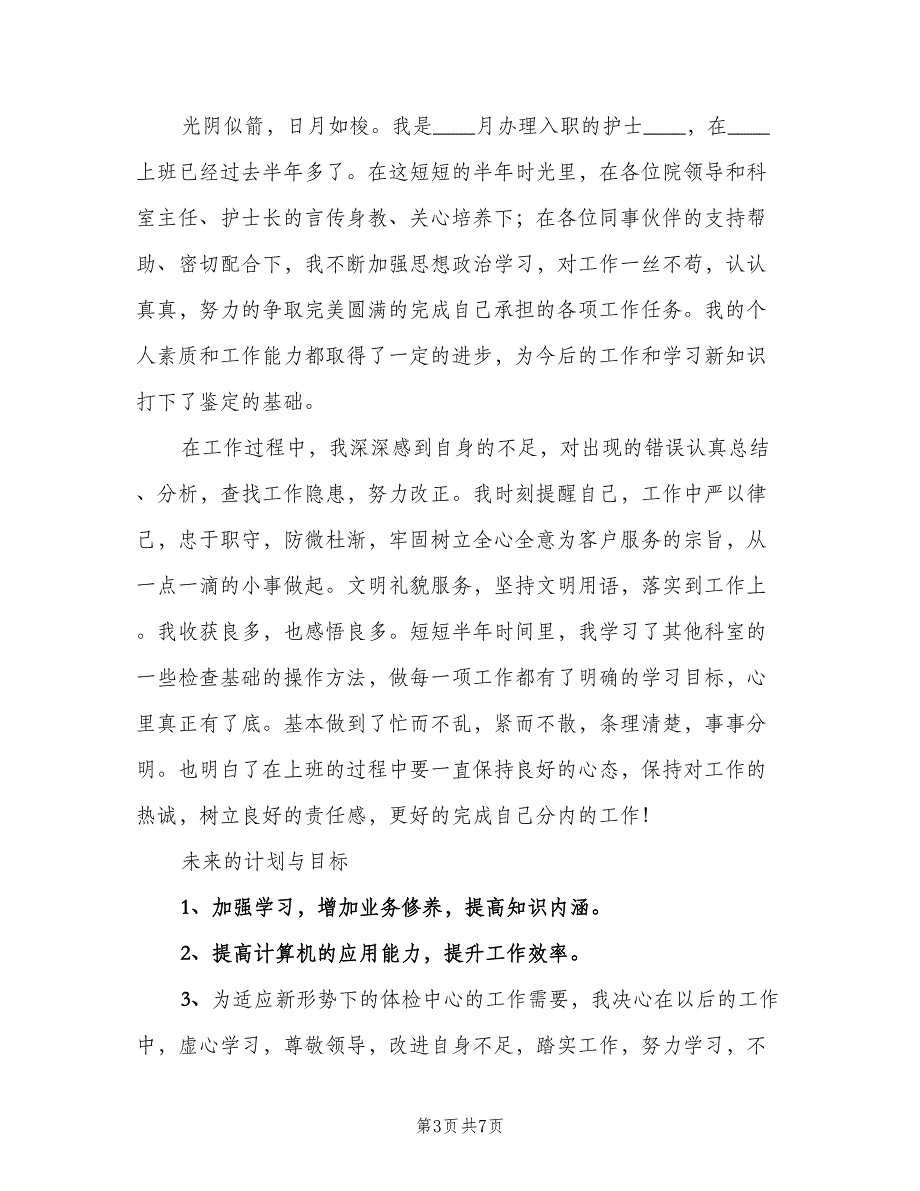 光阴似箭，日月如梭。我是____月办理入职的护士____，在____
上班已经过去半年多了。在这短短的半年时光里，在各位院领导和科
室主任、护士长的言传身教、关心培养下；在各位同事伙伴的支持帮
助、密切配合下，我不断加强思想政治学习，对工作一丝不苟，认认
真真，努力的争取完美圆满的完成自己承担的各项工作任务。我的个
人素质和工作能力都取得了一定的进步，为今后的工作和学习新知识
打下了鉴定的基础。
在工作过程中，我深深感到自身的不足，对出现的错误认真总结
、分析，查找工作隐患，努力改正。我时刻提醒自己，工作中严以律
己，忠于职守，防微杜渐，牢固树立全心全意为客户服务的宗旨，从
一点一滴的小事做起。文明礼貌服务，坚持文明用语，落实到工作上
。我收获良多，也感悟良多。短短半年时间里，我学习了其他科室的
一些检查基础的操作方法，做每一项工作都有了明确的学习目标，心
里真正有了底。基本做到了忙而不乱，紧而不散，条理清楚，事事分
明。也明白了在上班的过程中要一直保持良好的心态，保持对工作的
热诚，树立良好的责任感，更好的完成自己分内的工作！
未来的计划与目标
1、加强学习，增加业务修养，提高知识内涵。
2、提高计算机的应用能力，提升工作效率。
3、为适应新形势下的体检中心的工作需要，我决心在以后的工作
中，虚心学习，尊敬领导，改进自身不足，踏实工作，努力学习，不
第3页共7页